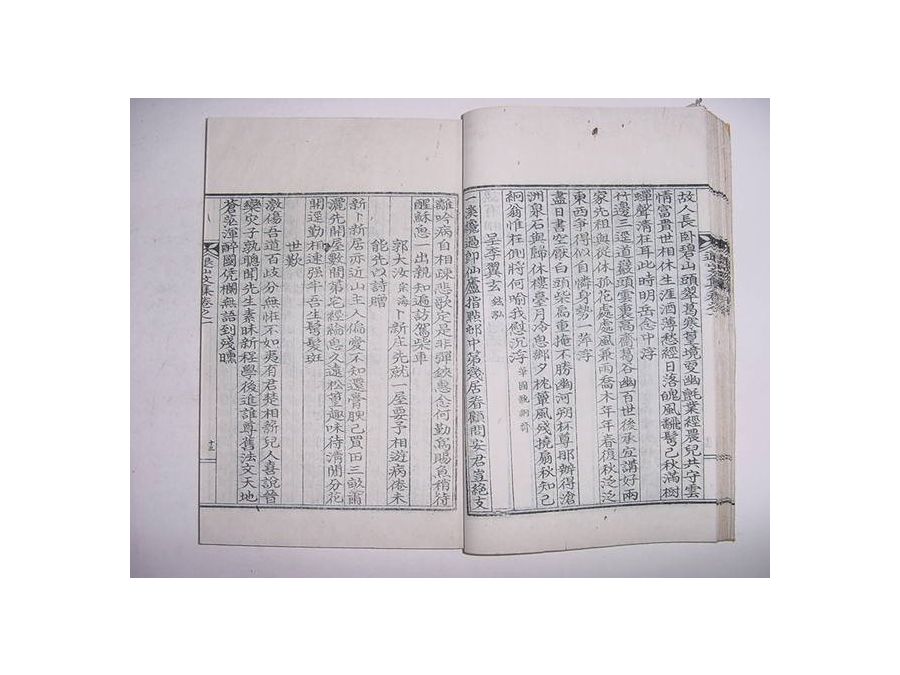 故人長卧碧山頭翠葛寒蔓境更幽氈業經農兒共守雲
情富貴世相休生涯酒薄愁經日落魄風飜鬓已秋滿樹
蟬聲淸在耳此時明岳念中浮
竹邊三逕道最頭雲裏高齋葛谷幽百世後承宜講好兩
家先祖與從休孤花處處風兼雨喬木年年春復秋泛泛
東西爭得似自憐身勢一萍浮
盡日書空厭白頭柴高重掩不勝幽河朔杯尊那辦得滄
洲泉石與歸休樓臺月冷思鄉夕枕簟風殘掩扇秋知己
絅翁惟在側將何喻我慰沉浮
呈李翼玄
一笑飄過卽仙廬指點邨中第幾居眷顧問安君豈絶支
離吟病自相疎悲歌定是非彈鋏惠念何勤爲賜魚稍待
醒蘇患一出親知遍訪駕柴車
郭大汝 卜新庄先就一屋要予相遊病倦未
能先以詩贈
新卜新居亦近山主人偏愛不知還膏腴己買田三畝甫
灑先開屋數間第宅經綸思久遠松篁趣味待淸閒分花
開逕勤相速强半吾生鬓髮斑
世歎
激傷吾道百歧分無恠不如夷有君楚相薪兒人喜說晉
欒灾子孰聰聞先生素昧新程學後進誰尊舊法文天地
蒼茫渾醉國凭欄無語到殘曛
山文集卷之一